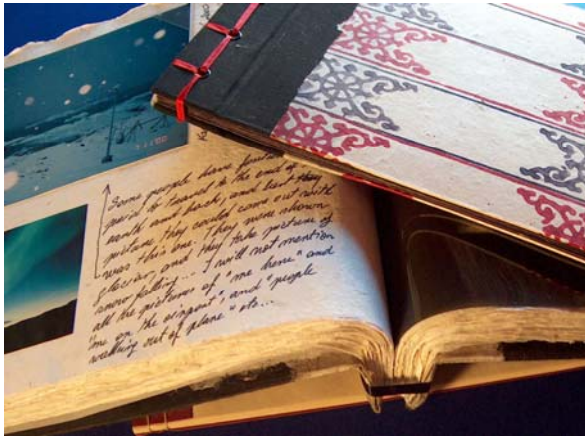 Some people have
paid to travel to the end of
earth and back, and best they
picture they could come out with
was this one. They were shown
glacier, and they take picture of
snow falling... I will not mention
all the pictures of "me here" and
"me on the airport" and "people
walking out of plane" etc...